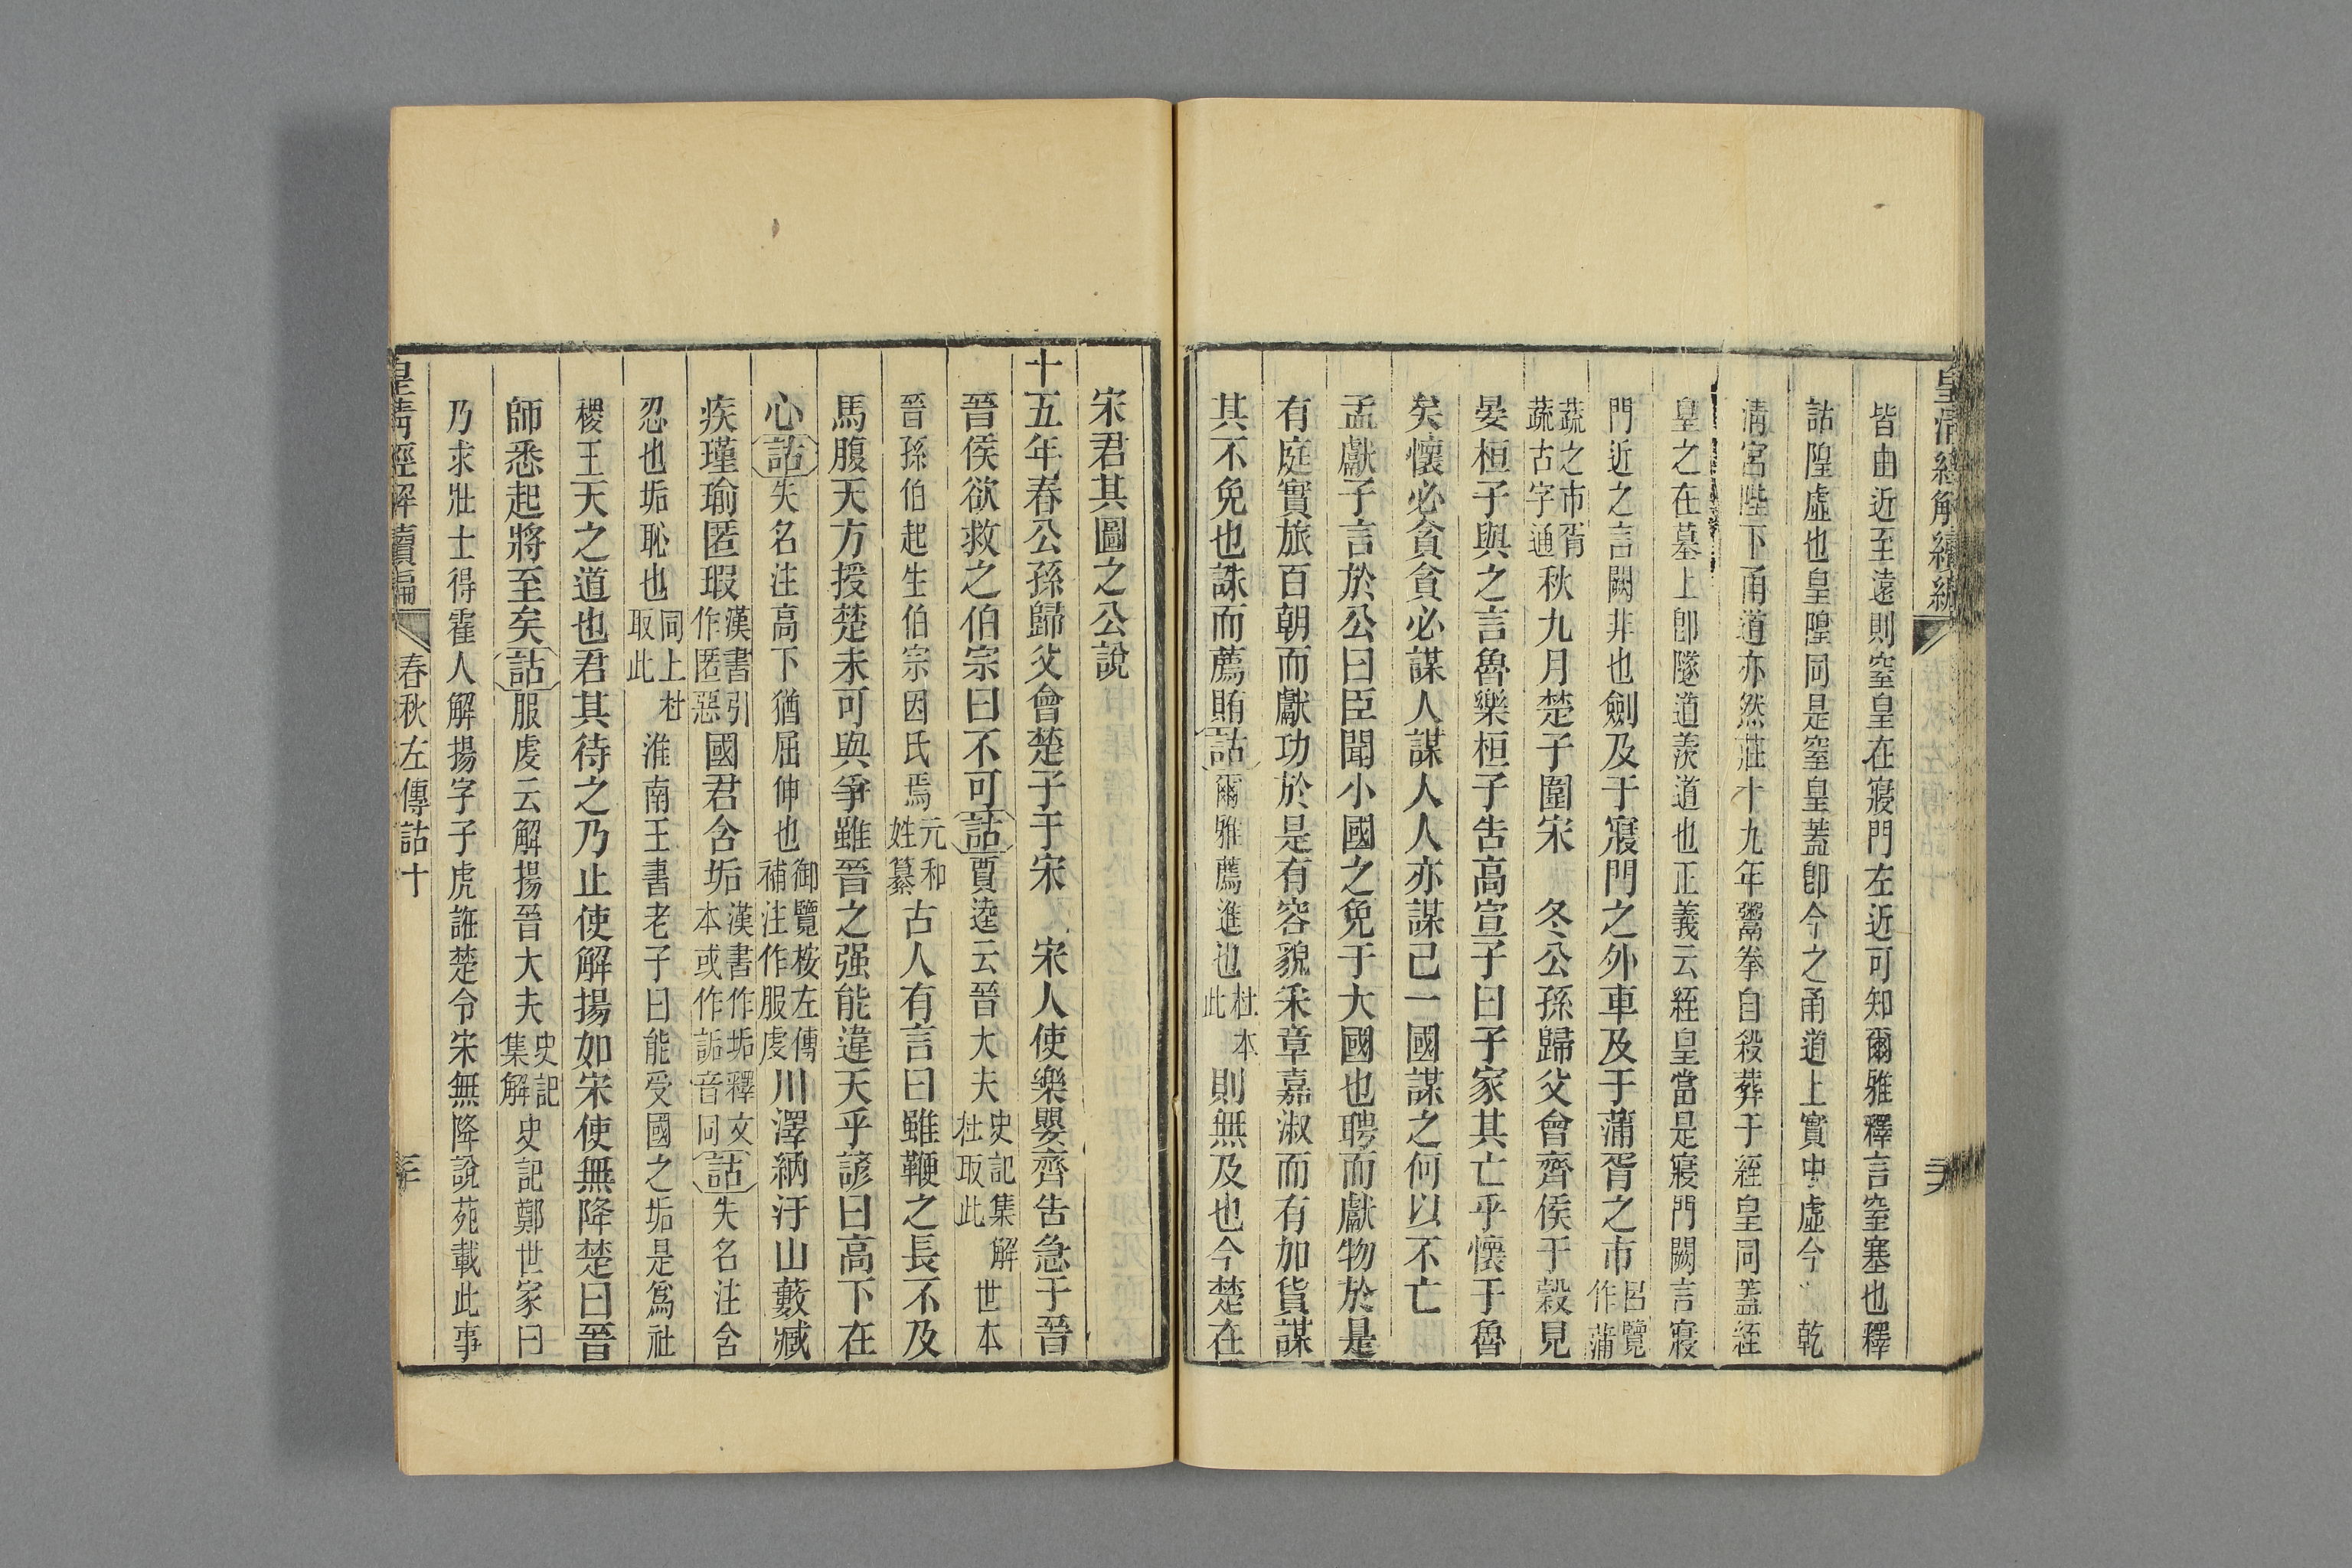 皇清經解續編
皆由近至遠則窒皇在寢門左近可知爾雅釋言窒塞也釋
詁隍虛也皇隍同是窒皇蓋卽今之甬道上實中虛今 乾
清宮陛下甬道亦然莊十九年鬻拳自殺葬于絰皇同蓋絰
皇之在墓上卽隧道羨道也正義云絰皇當是寢門闕言寢
門近之言闕非也劍及于寢門之外車及于蒲胥之市呂覽作蒲
蔬之市胥蔬古字通秋九月楚子圍宋 冬公孫歸父會齊侯于穀見
晏桓子與之言魯樂桓子告高宣子曰子家其亡乎懷于魯
矣懷必貪貪必謀人謀人人亦謀己一國謀之何以不亡
孟獻子言於公曰臣聞小國之免于大國也聘而獻物於是
有庭實旅百朝而獻功於是有容貌采章嘉淑而有加貨謀
其不免也誅而薦賄詁爾雅薦進也杜本此則無及也今楚在
宋君其圖之公說
十五年春公孫歸父會楚子于宋 宋人使樂嬰齊告急于晉
晉侯欲救之伯宗曰不可詁賈逵云晉大夫史記集解杜取此世本
晉孫伯起生伯宗因氏焉元和姓纂古人有言曰雖鞭之長不及
馬腹天方授楚未可與爭雖晉之强能違天乎諺曰高下在
心詁失名注高下猶屈伸也御覽桉左傳補注作服虔川澤納汙山藪臧
疾瑾瑜匿瑕漢書引作匿惡國君含垢漢書作垢釋文本或作詬音同詁失名注含
忍也垢恥也同上杜取此淮南王書老子曰能受國之垢是爲社
稷王天之道也君其待之乃止使解揚如宋使無降楚曰晉
師悉起將至矣詁服虔云解揚晉大夫史記集解史記鄭世家曰
乃求壯士得霍人解揚字子虎誑楚令宋無降說苑載此事
皇清經解續編 春秋左傳詁十